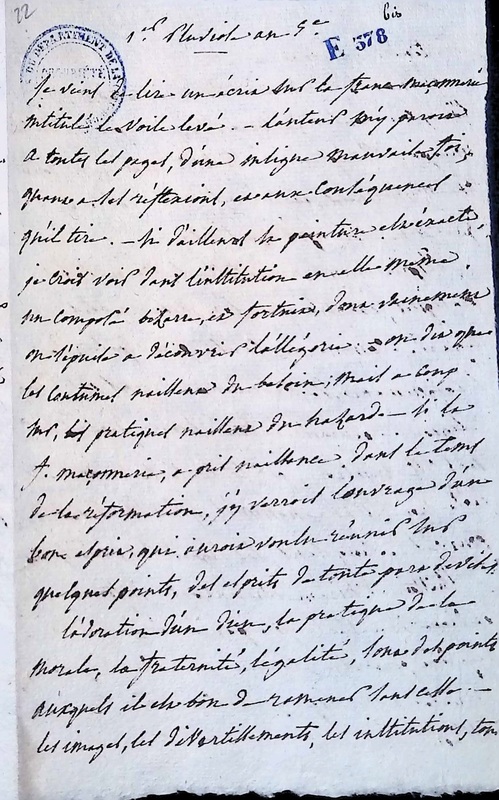 22
1er Pluviose an 5e
bis
E 378
Je viens de lire un écrit sur la franc maçonnerie
intitulé le Voile levé. – l'auteur m'y parois
a toutes les pages, d'une insigne mauvaise foi
quant a ses réflexions, et aux conséquences
qu'il tire. – Si d'ailleurs la peinture est éxacte,
je crois voir dans l'institution en elle même,
un composé bizarre, et fortuit, dont vainement
on s'épuise a découvrir l'allégorie. on dit que
les coutumes naissent du besoin; mais a coup
sur, les pratiques naissent du hazard – Si la
f. maçonnerie, a pris naissance dans le tems
de la réformation, j'y verrois l'ouvrage d'un
bon esprit, qui auroit voulu réunir sur
quelques points, des esprits de toute part divisés.
l'adoration d'un dieu, la pratique de la
morale, la fraternité, l'égalité, sont des points
auxquels il est bon de ramener sans cesse. –
les images, les divertissements, les institutions, tout